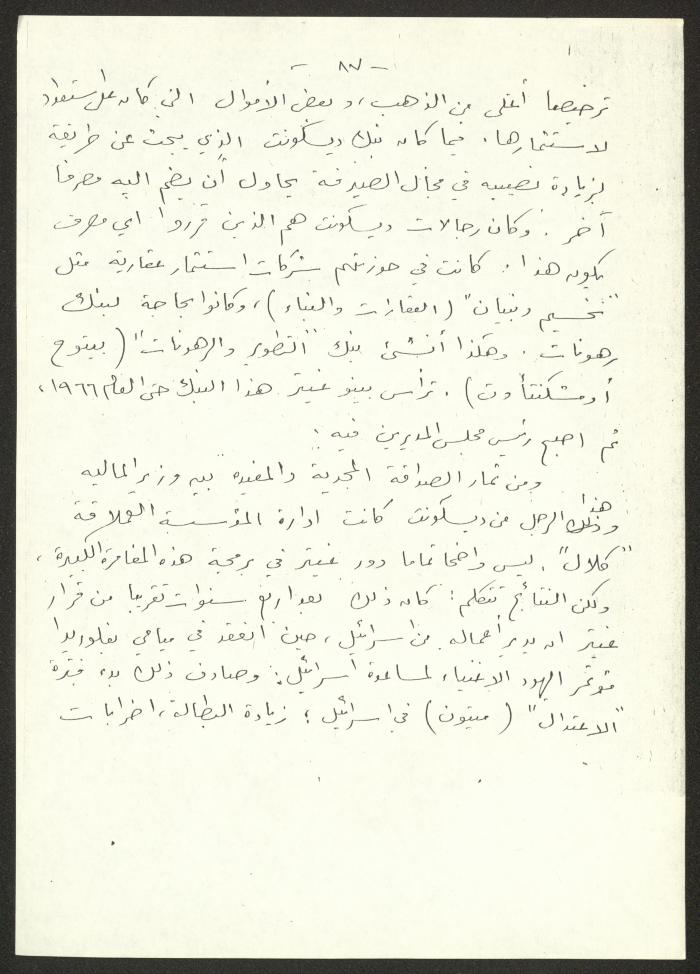 - ٨٧ -
ترخيصها أغلى من الذهب، وبعض الأموال التي كان على استعداد
لاستثمارها. فيما كان بنك ديسكونت الذي يبحث عن طريقة
لزيادة نصيبه في مجال الصيرفة يحاول أن يضم اليه مصرفا
آخر. وكان رجالات ديسكونت هم الذين قرروا اي مصرف
يكون هذا. كانت في حوزتهم شركات استثمار عقارية مثل
"نخسيم وبنيان" (العقارات والبناء)، وكانوا بحاجة لبنك
رهونات. وهكذا أنشئ بنك "التطوير والرهونات" (بيتوح
أو مشكنتأوت). ترأس بينو غيتر هذا البنك حتى العام ١٩٦٦،
ثم اصبح رئيس مجلس المديرين فيه.
ومن ثمار الصداقة المجدية والمفيدة بين وزير المالية
وهذا الرجل من ديسكونت كانت ادارة المؤسسة العملاقة
"كلال". ليس واضحا تماما دور غيتر في برمجة هذه المغامرة الكبيرة،
ولكن النتائج تتكلم: كان ذلك بعد اربع سنوات تقريبا من قرار
غيتر ان يدير أعماله من اسرائيل، حين انعقد في ميامي بفلوريدا
مؤتمر اليهود الاغنياء لمساعدة اسرائيل: وصادف ذلك بدء فترة
"الاعتدال" (ميتون) في اسرائيل؛ زيادة البطالة، اضرابات